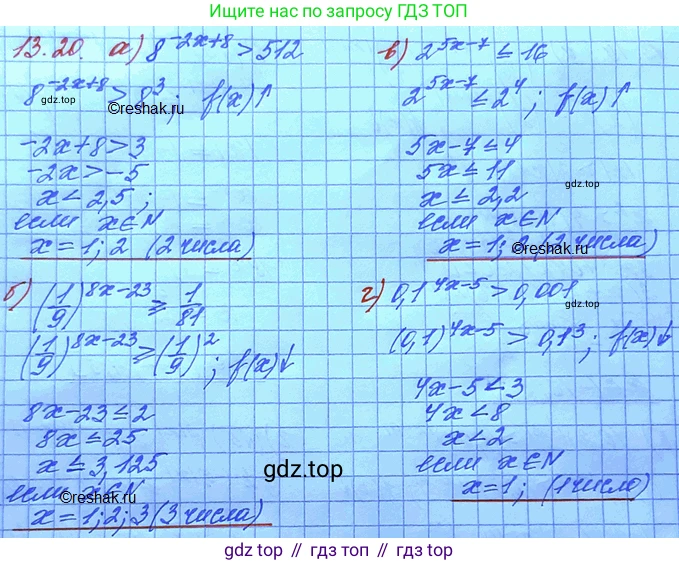 Ищите нас по запросу ГДЗ ТОП
13.20. а) 8^(-2x+8) > 512
8^(-2x+8) > 8^3; f(x)↑
©reshak.ru
-2x+8 > 3
-2x > -5
x < 2,5;
если x∈N
x = 1; 2 (2 числа)
в) 2^(5x-7) ≤ 16
2^(5x-7) ≤ 2^4; f(x)↑
5x-7 ≤ 4
5x ≤ 11
gdz.top
x ≤ 2,2
если x∈N
x = 1; 2 (2 числа)
©reshak.ru
б) (1/9)^(8x-23) ≥ 1/81
(1/9)^(8x-23) ≥ (1/9)^2; f(x)↓
8x-23 ≤ 2
8x ≤ 25
x ≤ 3,125
gdz.top
если x∈N
©reshak.ru
x = 1; 2; 3 (3 числа)
г) 0,1^(4x-5) > 0,001
gdz.top
(0,1)^(4x-5) > 0,1^3; f(x)↓
4x-5 < 3
4x < 8
x < 2
если x∈N
©reshak.ru
x = 1; (1 число)
gdz.top // гдз топ // гдз.топ